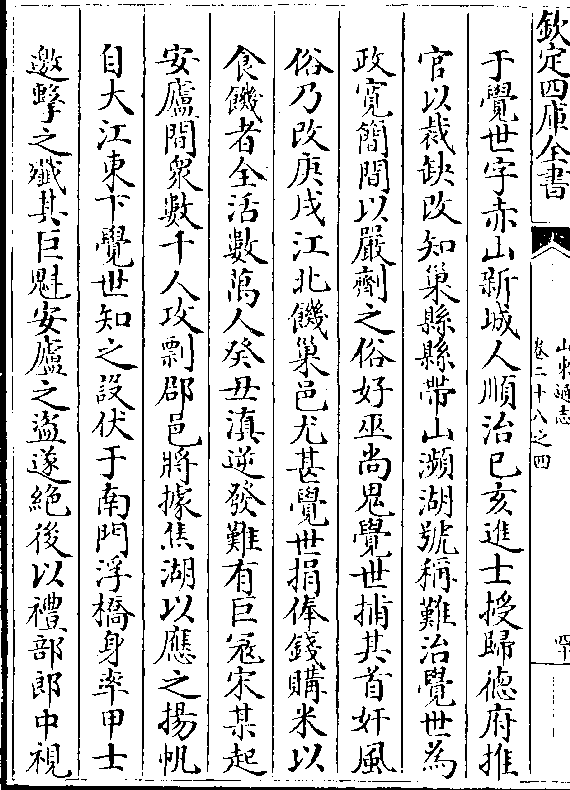 欽定四庫全書
山東通志
卷二十八之四
于覺世字赤山新城人順治己亥進士授歸德府推
官以裁缺改知巢縣縣帶山瀕湖號稱難治覺世為
政寛簡間以嚴劑之俗好巫尚鬼覺世捕其首奸風
俗乃改庚戌江北饑巢邑尤甚覺世捐俸錢購米以
食饑者全活數萬人癸丑滇逆發難有巨宼宋某起
安廬間衆數千人攻剽郡邑將據焦湖以應之揚帆
自大江東下覺世知之設伏于南門浮橋身率甲士
邀擊之殲其巨魁安廬之盜遂絶後以禮部郎中視